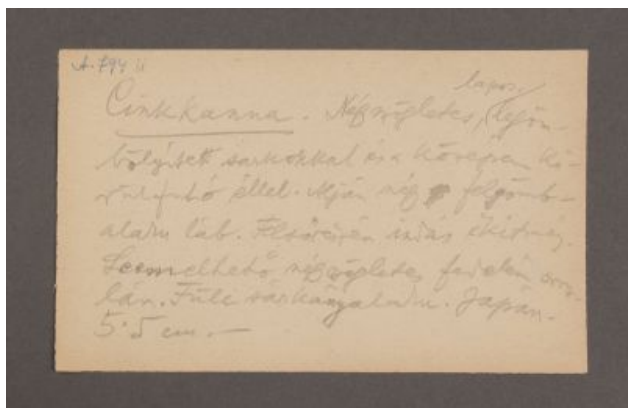 A. 794
lapos,
Cinkkanna. Négszögletes, legöm-
bölyített sarkokkal és a közepén kö-
rülfutó éllel. Alján négy félgömb-
alaku láb. Felsőrészén indás ékítmény.
Leemelhető négszögletes fedelén
Füle sárkányalaku. Japán.
5·5 cm. —